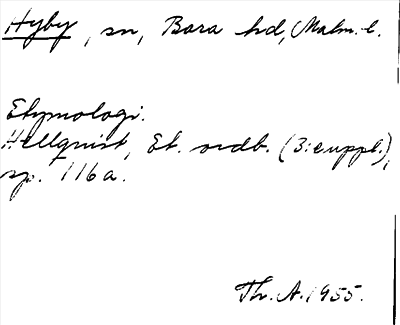 Hyby, sn, Bara hd, Malm. l.
Etymologi.
Hellquist, Et. ordb. (3:e uppl.),
sp. 116 a.
Th. A. 1955.